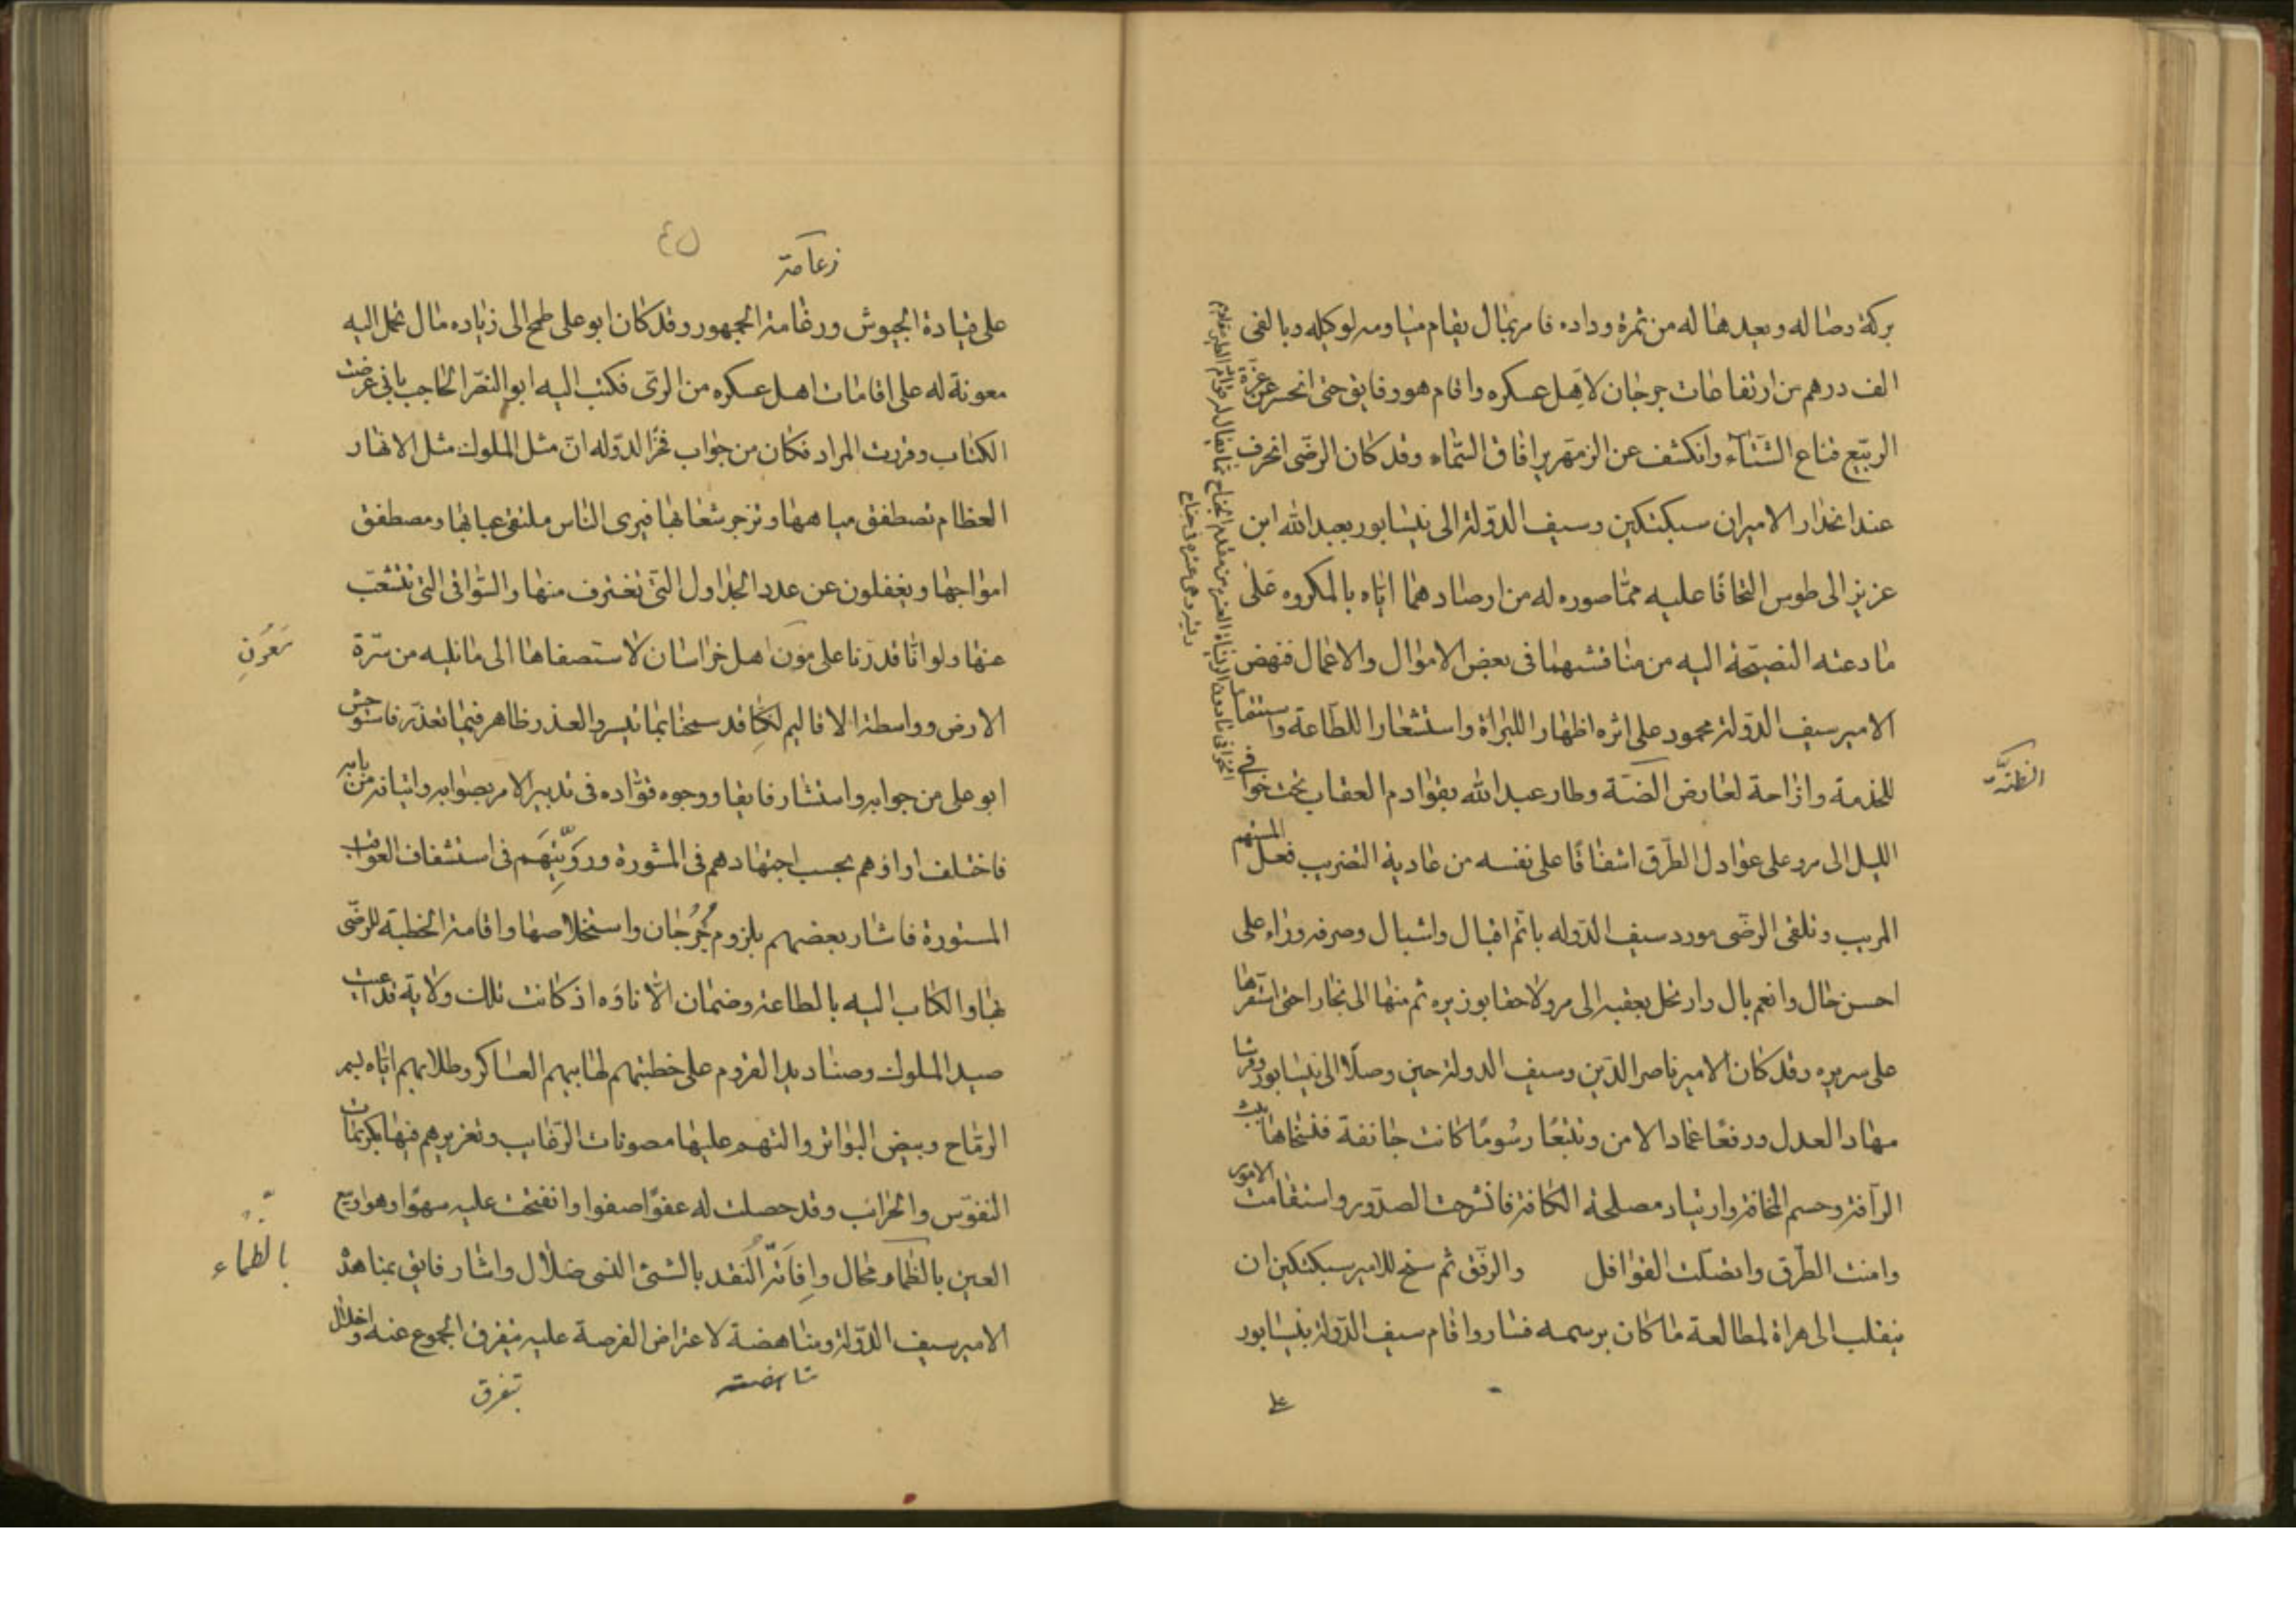 بركة وصاله وبعيدها له من ثمرة وداده فامر بمال يقام مياومه لوكيله وبالفى
الف درهم من ارتفاعات جرجان لاهل عسكره واقام هو وفايق حتى انحسر عن غرة
الربيع قناع الشتآء وانكشف عن الزمهرير افاق السّماء وقد كان الرضى انحرف
عند انحدار الاميران سبكتكين وسيف الدّولة الى نيسابور بعبد الله ابن
عزيز الى طوس التحافًا عليه ممّا صوره له من ارصادهما ايّاه بالمكروه على
ما دعته النصيحة اليه من مناقشهما فى بعض الاموال والاعمال فنهض
الامير سيف الدّولة محمود على اثره اظهار اللبراة واستشعارا للطاعة واستقبالا
للخدمة وازاحة لعارض الضنّة وطار عبد الله بقوادم العقاب تحت خوافى
الليل الى مرو على عوادل الطرق اشفاقًا على نفسه من عادية التضريب فعل المتهم
المريب وتلقى الرضّى مورد سيف الدّوله باتّم اقبال واشبال وصرفه وراءه على
احسن حال وانعم بال وارتحل بعقبه الى مرو لاحقا بوزيره ثم منها الى بخارا حتى استقرّ بها
على سريره وقد كان الامير ناصر الدّين وسيف الدولة حين وصلا الى نيسابور فرشا
مهاد العدل ورفعا عماد الامن وتتبّعا رسُومًا كانت جائفة فنسخاها بحيث
الرآفة وحسم المخافة وارتياد مصلحة الكافة فانشرحت الصدّور واستقامت الامور
وامنت الطّرق واتصلت القوافل والرفق ثم سنح للامير سبكتكين ان
ينقلب الى هراة لمطالعة ما كان برسمه فسار واقام سيف الدّولة بنيسابور
الظنّة
على
٤٥
زعامة
على قيادة الجيوش ورغامة الجمهور وقد كان ابو على طمح الى زياده مال تحمل اليه
معونة له على اقامات اهل عسكره من الرى فكتب اليه ابو النصر الحاجب بانى عرضت
الكتاب وقررت المراد فكان من جواب فخر الدّوله انّ مثل الملوك مثل الانهار
العظام تصطفق مياهها وتزجر شعابها فيرى الناس ملتقى عبابها ومصطفق
امواجها ويغفلون عن عدد الجداول التى تغترف منها والسّواقى التى تتشعّب
عنها ولو انّا قدرنا على مون اهل خراسان لاستصفاها الى ما نليه من سرّة
الارض وواسطة الاقاليم لكنا قد سمحنا بما تيسر والعذر ظاهر فيما تعذّر فاستوحش
ابو على من جوابه واستشار فايقا ووجوه قوّاده فى تدبير الامر بصوابه واتيانه من بابه
فاختلف اراؤهم بحسب اجتهادهم فى المشورة ورويّتهم فى استشفاف العواقب
المستورة فاشار بعضهم بلزوم جُرجُان واستخلاصها واقامة الخطبة للرضّى
بها والكتاب اليه بالطاعة وضمان الاتاوه اذ كانت تلك ولاية قد اعيت
صيد الملوك وصناديد القروم على خطبتهم لها بيهم العساكر وطلابهم ايّاه بسمر
الرّماح وبيض البواتر والتهم عليها مصونات الرّقاب وتغزيرهم فيها بكريمات
النفوس والحرائب وقد حصلت له عفوًا صفوا وانفتحت عليه سهوًا رهوا وبيع
العين بالظمآء محال وافاتة النّقد بالشئ النسى ضلال واشار فايق بمناهدة
الامير سيف الدّولة ومناهضة لاعتراض الفرصة عليه بتفرق الجموع عنه واخلال
بالظماء
تفرق